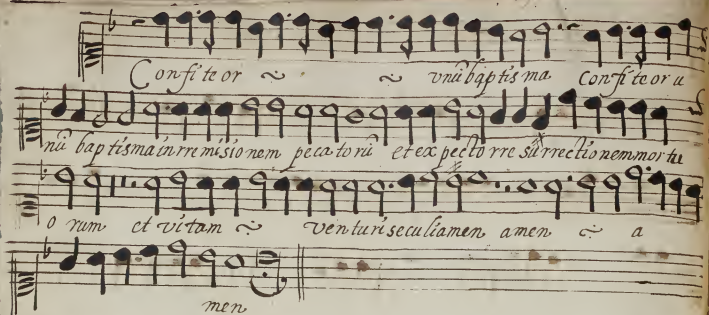 Confiteor ~ ~ vnũ baptisma Confiteor u
nũ baptisma in rremisionem pecatorũ et expecto rre surrectionem mortu
orum et vitam ~ venturi seculi amen amen ~ a
men